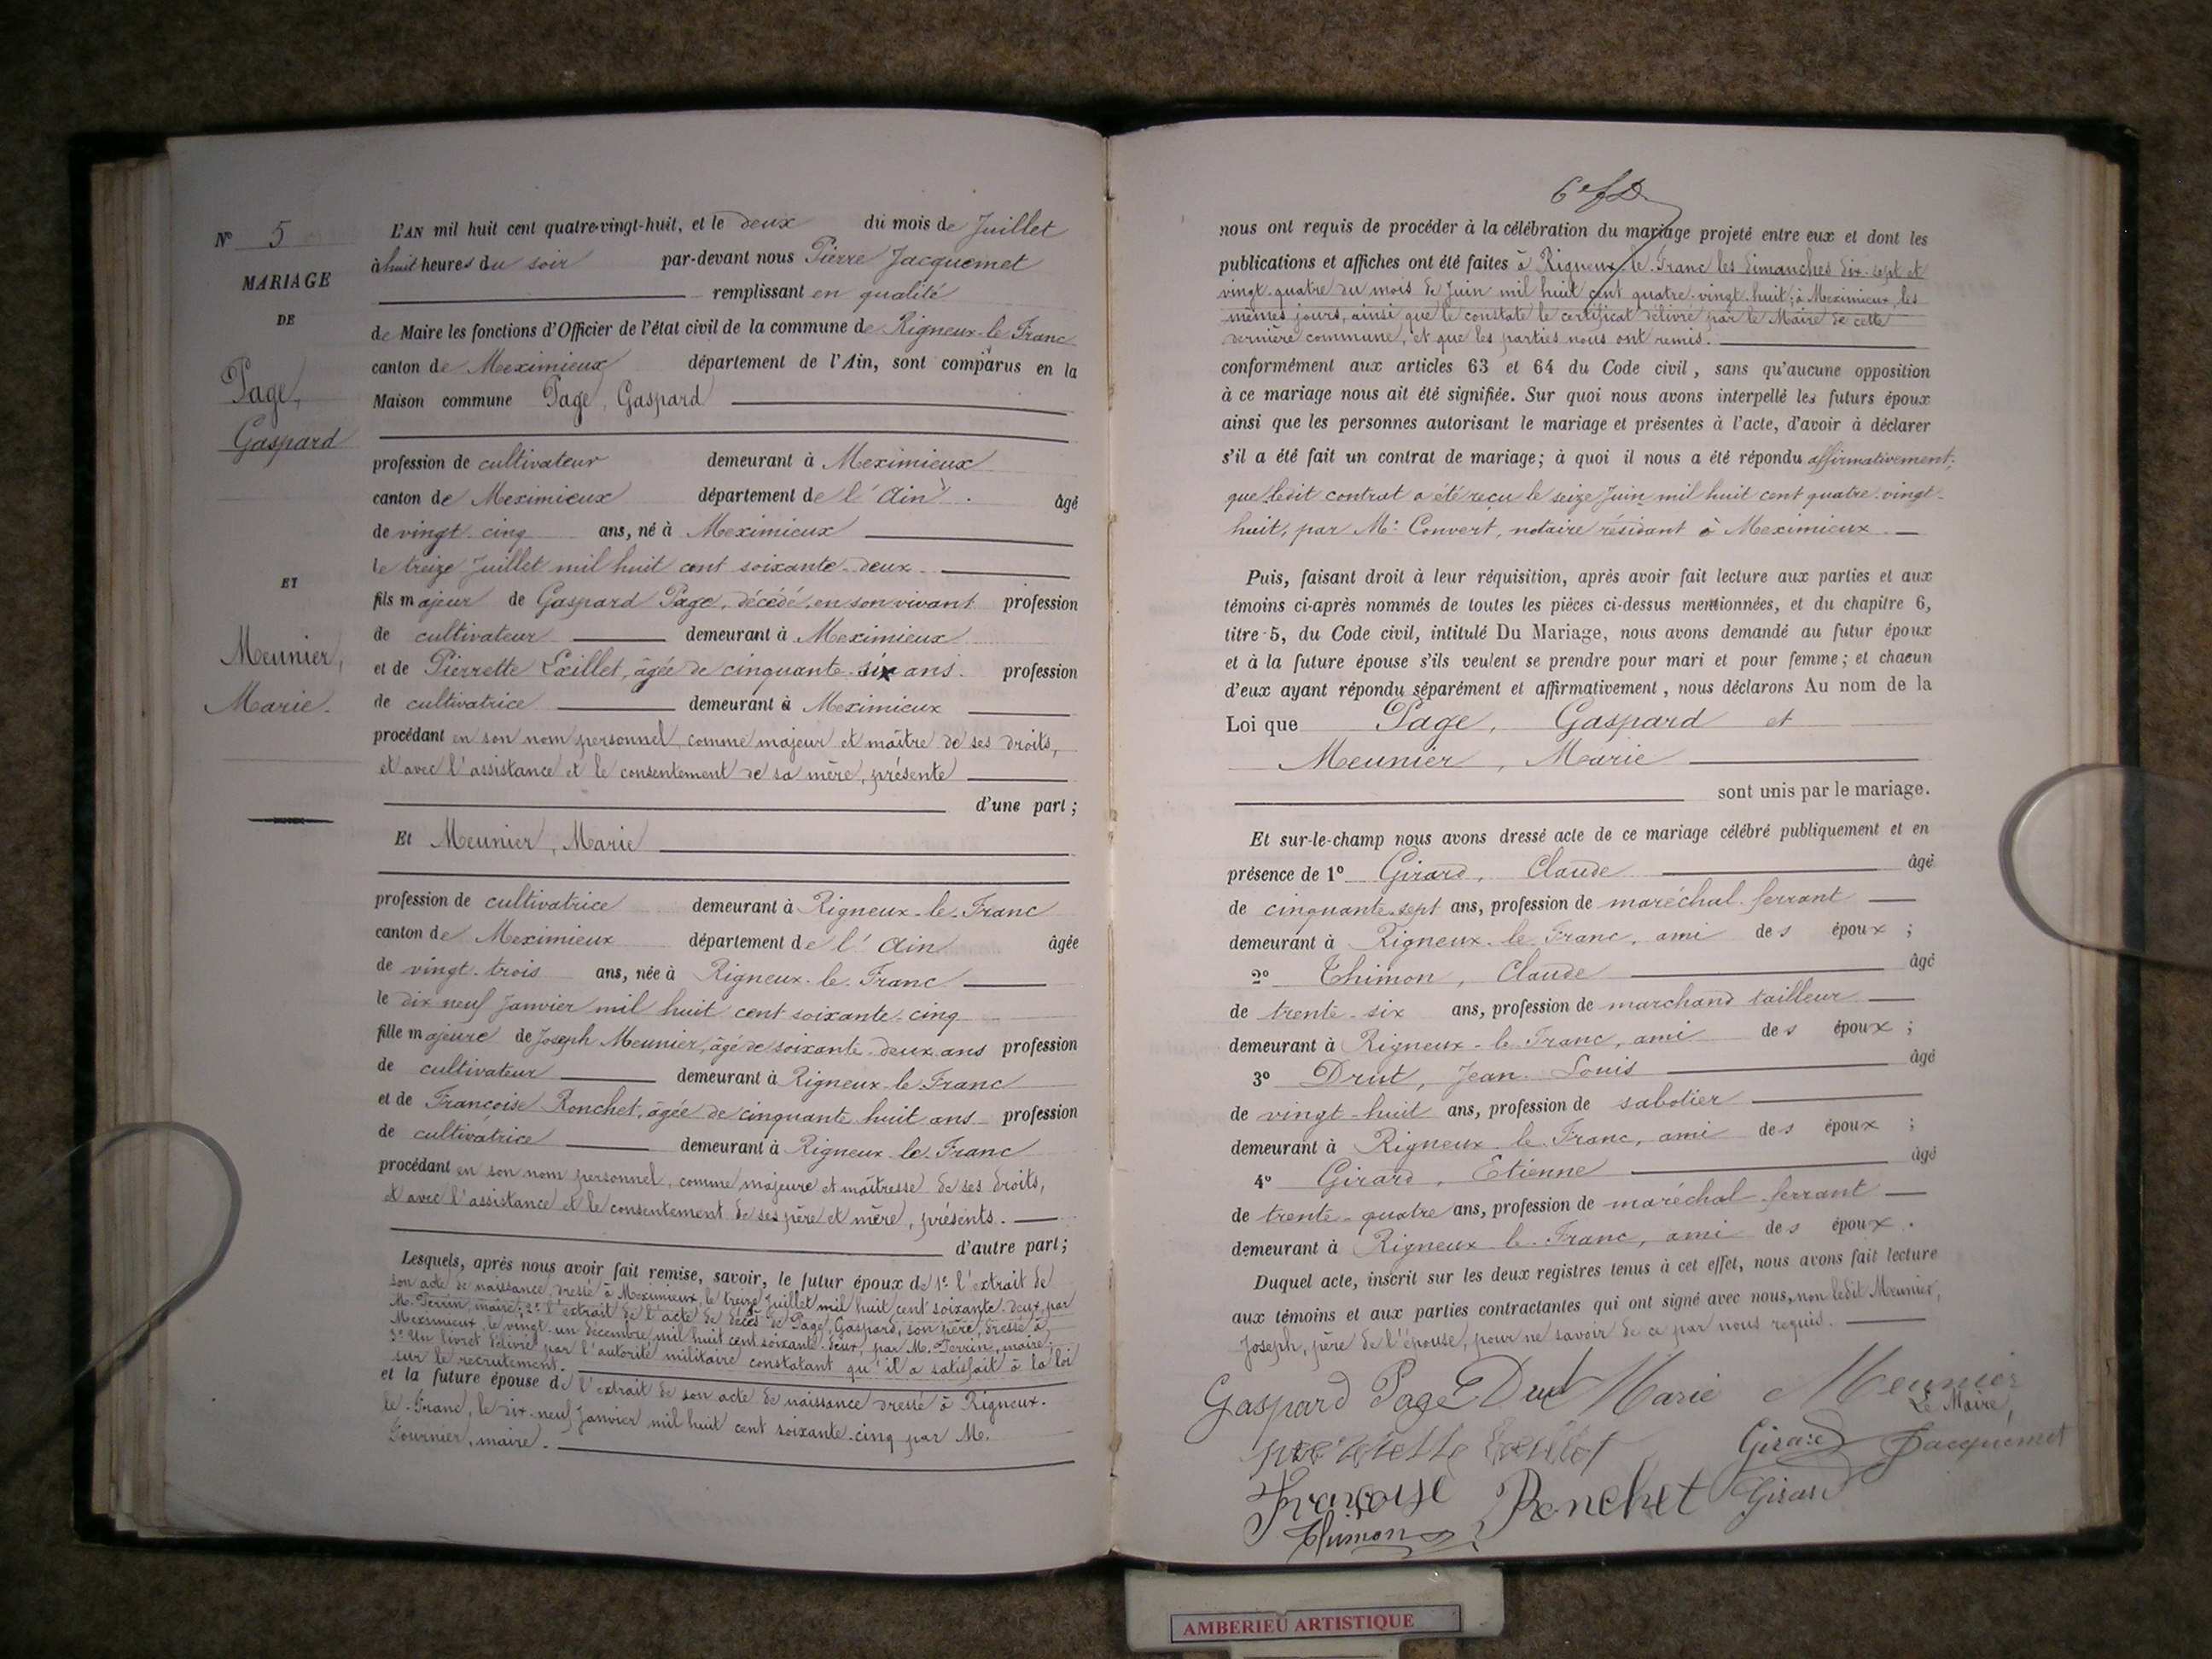 Nº 5
MARIAGE
DE
Page,
Gaspard
ET
Meunier,
Marie.
L'AN mil huit cent quatre-vingt-huit, et le deux du mois de Juillet
à huit heures du soir par-devant nous Pierre Jacquemet
remplissant en qualité
de Maire les fonctions d'Officier de l'état civil de la commune de Rigneux-le-Franc
canton de Meximieux département de l'Ain, sont comparus en la
Maison commune Page, Gaspard
profession de cultivateur demeurant à Meximieux
canton de Meximieux département de l'Ain. âgé
de vingt-cinq ans, né à Meximieux
le treize Juillet mil huit cent soixante-deux
fils majeur de Gaspard Page, décédé, en son vivant profession
de cultivateur demeurant à Meximieux
et de Pierrette Exillet, âgée de cinquante-six ans. profession
de cultivatrice demeurant à Meximieux
procédant en son nom personnel, comme majeur et maître de ses droits,
et avec l'assistance et le consentement de sa mère, présente
d'une part;
Et Meunier, Marie
profession de cultivatrice demeurant à Rigneux-le-Franc
canton de Meximieux département de l'Ain âgée
de vingt-trois ans, née à Rigneux-le-Franc
le dix neuf Janvier mil huit cent soixante-cinq
fille majeure de Joseph Meunier, âgé de soixante-deux ans profession
de cultivateur demeurant à Rigneux-le-Franc
et de Françoise Ronchet, âgée de cinquante-huit ans profession
de cultivatrice demeurant à Rigneux-le-Franc
procédant en son nom personnel, comme majeure et maîtresse de ses droits,
et avec l'assistance et le consentement de ses père et mère, présents.
d'autre part;
Lesquels, après nous avoir fait remise, savoir, le futur époux de 1º l'extrait de
son acte de naissance, dressé à Meximieux, le treize Juillet mil huit cent soixante-deux, par
M. Perrin, maire; 2º l'extrait de l'acte de décès de Page, Gaspard, son père, dressé à
Meximieux, le vingt-un décembre mil huit cent soixante-deux, par M. Perrin, maire;
3º Un livret délivré par l'autorité militaire constatant qu'il a satisfait à la loi
sur le recrutement.
et la future épouse de l'extrait de son acte de naissance dressé à Rigneux-
le-Franc, le dix-neuf Janvier mil huit cent soixante-cinq par M.
Fournier, maire.
nous ont requis de procéder à la célébration du mariage projeté entre eux et dont les
publications et affiches ont été faites à Rigneux-le-Franc les dimanches dix-sept et
vingt-quatre du mois de Juin mil huit cent quatre-vingt-huit; à Meximieux, les
mêmes jours, ainsi que le constate le certificat délivré par le Maire de cette
dernière commune, et que les parties nous ont remis.
conformément aux articles 63 et 64 du Code civil, sans qu'aucune opposition
à ce mariage nous ait été signifiée. Sur quoi nous avons interpellé les futurs époux
ainsi que les personnes autorisant le mariage et présentes à l'acte, d'avoir à déclarer
s'il a été fait un contrat de mariage; à quoi il nous a été répondu affirmativement;
que ledit contrat a été reçu le seize Juin mil huit cent quatre-vingt-
huit, par Me Convert, notaire résidant à Meximieux.
Puis, faisant droit à leur réquisition, après avoir fait lecture aux parties et aux
témoins ci-après nommés de toutes les pièces ci-dessus mentionnées, et du chapitre 6,
titre 5, du Code civil, intitulé Du Mariage, nous avons demandé au futur époux
et à la future épouse s'ils veulent se prendre pour mari et pour femme; et chacun
d'eux ayant répondu séparément et affirmativement, nous déclarons Au nom de la
Loi que Page, Gaspard et
Meunier, Marie
sont unis par le mariage.
Et sur-le-champ nous avons dressé acte de ce mariage célébré publiquement et en
présence de 1º Girard, Claude âgé
de cinquante-sept ans, profession de maréchal-ferrant
demeurant à Rigneux-le-Franc, ami des époux;
2º Thimon, Claude âgé
de trente-six ans, profession de marchand tailleur
demeurant à Rigneux-le-Franc, ami des époux;
3º Drut, Jean Louis âgé
de vingt-huit ans, profession de sabotier
demeurant à Rigneux-le-Franc, ami des époux;
4º Girard, Etienne âgé
de trente-quatre ans, profession de maréchal-ferrant
demeurant à Rigneux-le-Franc, ami des époux.
Duquel acte, inscrit sur les deux registres tenus à cet effet, nous avons fait lecture
aux témoins et aux parties contractantes qui ont signé avec nous, non ledit Meunier,
Joseph, père de l'épouse, pour ne savoir de ce par nous requis.
Gaspard Page Drut Marie Meunier
Le Maire,
Girard Jacquemet
Françoise Ronchet Girard
Thimon
AMBERIEU ARTISTIQUE